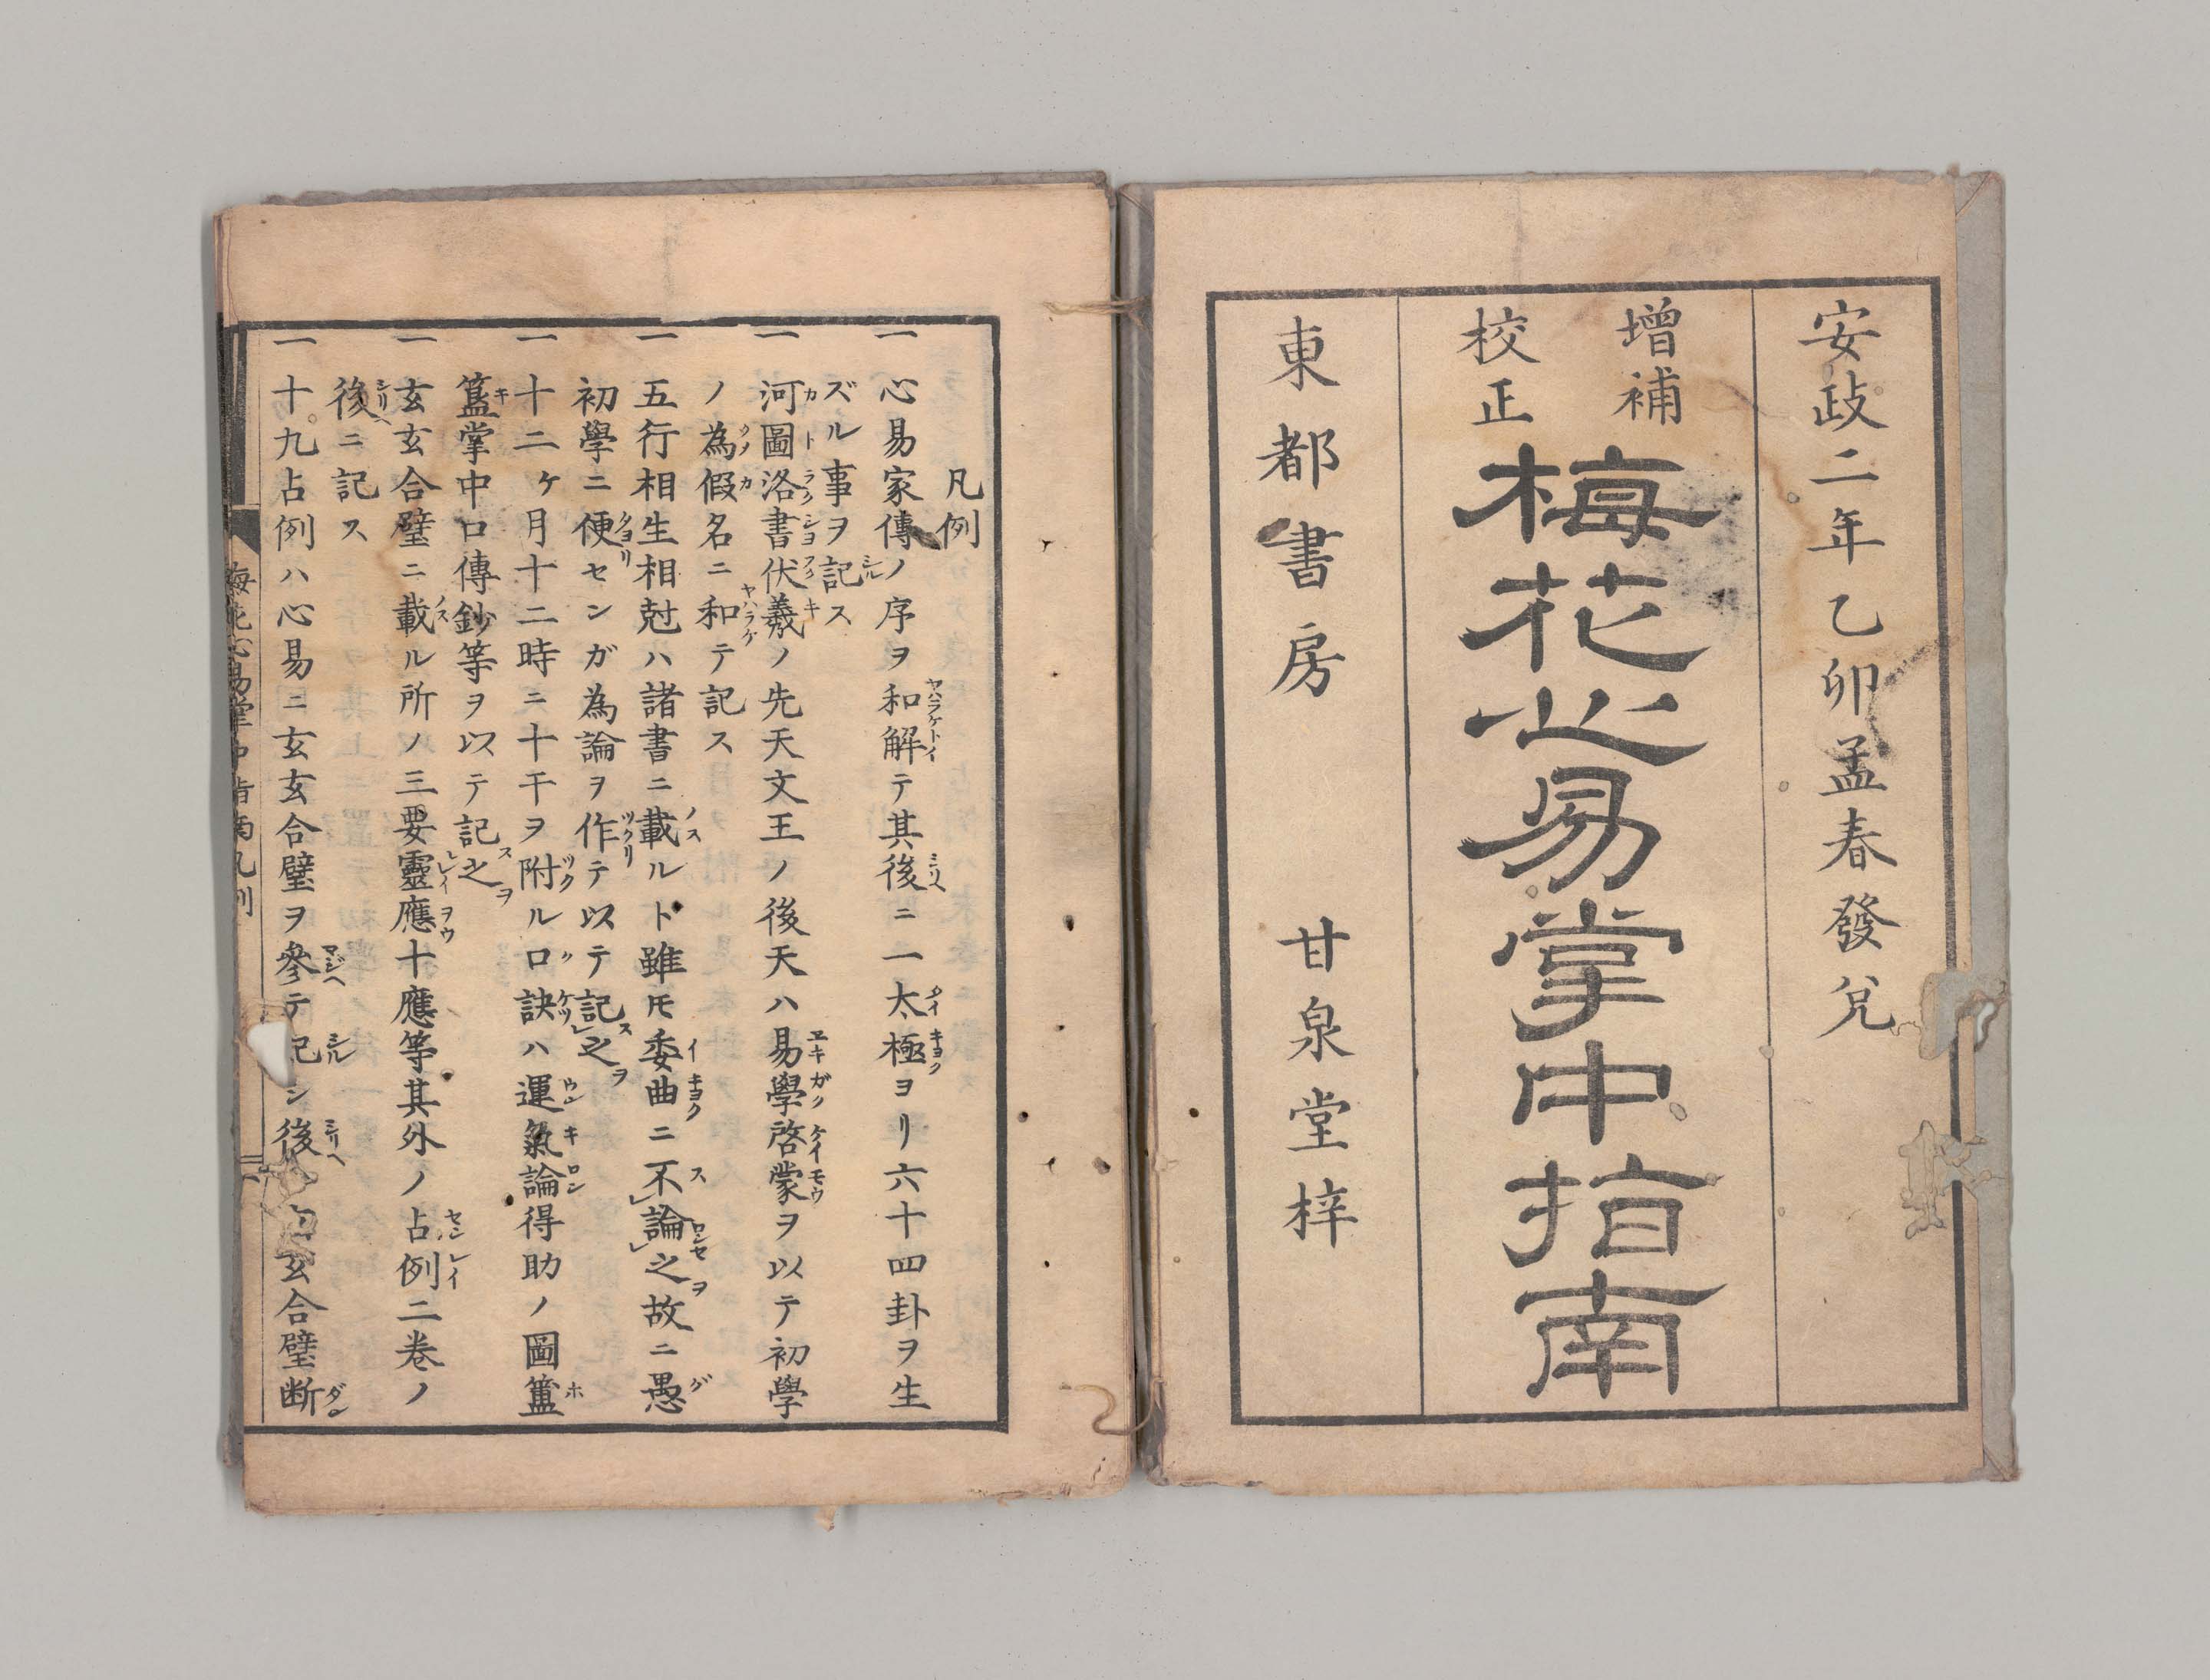 安政二年乙卯孟春發兌
増補
校正
梅花心易掌中指南
東都書房 甘泉堂梓
凡例
一心易家傳ノ序ヲ和解テ其後ニ一太極ヨリ六十四卦ヲ生
ズル事ヲ記ス
一河圖洛書伏羲ノ先天文王ノ後天ハ易學啓蒙ヲ以テ初學
ノ為假名ニ和テ記ス
一五行相生相尅ハ諸書ニ載ルト雖モ委曲ニ不論之故ニ愚
初學ニ便センガ為論ヲ作テ以テ記之
一十二ヶ月十二時ニ十干ヲ附ル口訣ハ運氣論得助ノ圖簠
簋掌中口傳鈔等ヲ以テ記之
一玄玄合璧ニ載ル所ノ三要靈應十應等其外ノ占例二巻ノ
後ニ記ス
一十九占例ハ心易ニ玄玄合璧ヲ參テ記シ後 玄合璧断
梅花心易掌中指南凡例